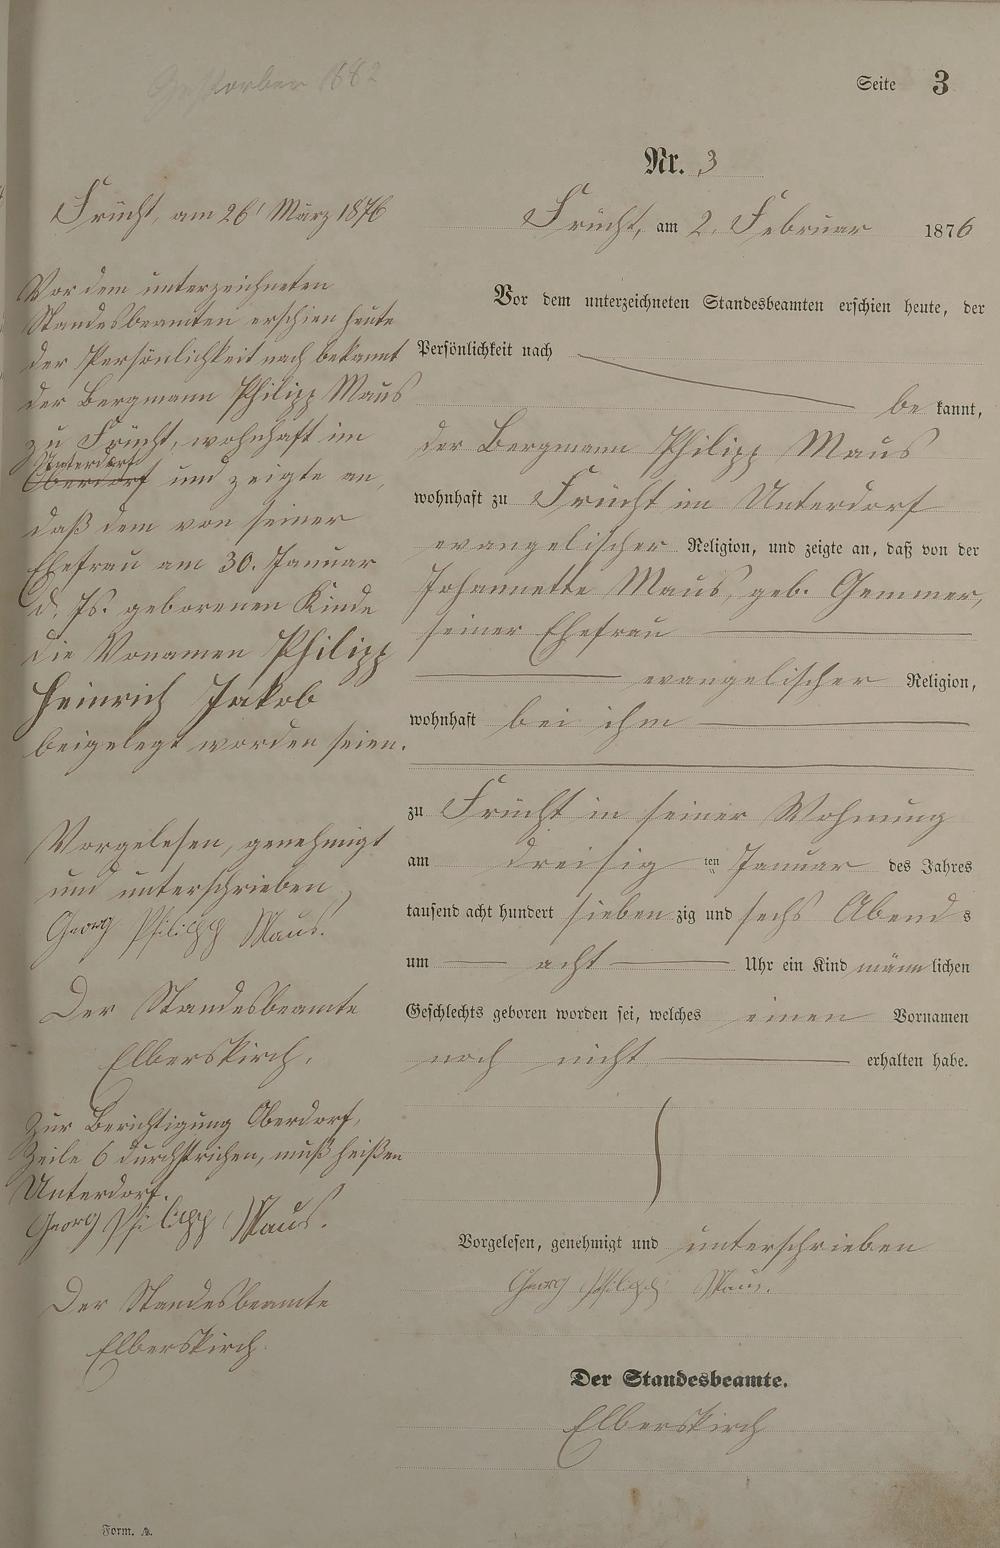 Gestorben 1882
Seite 3
Nr. 3
Frücht, am 26t März 1876
Vor dem unterzeichneten
Standesbeamten erschien heute
der Persönlichkeit nach bekannt
der Bergmann Philipp Maus
zu Frücht, wohnhaft im
Unterdorf
Oberdorf und zeigte an,
daß dem von seiner
Ehefrau am 30. Januar
d. Js. geborenen Kinde
die Vonamen Philipp
Heinrich Jakob
beigelegt worden seien.
Vorgelesen, genehmigt
und unterschrieben
Georg Philipp Maus.
Der Standesbeamte
Elberskirch.
Zur Berichtigung Oberdorf,
Zeile 6 durchstrichen, muß heißen
Unterdorf.
Georg Philipp Maus.
Der Standesbeamte
Elberskirch
Frücht, am 2. Februar 1876
Vor dem unterzeichneten Standesbeamten erschien heute, der
Persönlichkeit nach
be kannt,
der Bergmann Philipp Maus
wohnhaft zu Frücht im Unterdorf
evangelischer Religion, und zeigte an, daß von der
Johannette Maus, geb. Gemmer,
seiner Ehefrau
evangelischer Religion,
wohnhaft bei ihm
zu Frücht in seiner Wohnung
am dreisig ten Januar des Jahres
tausend acht hundert sieben zig und sechs Abend s
um acht Uhr ein Kind männ lichen
Geschlechts geboren worden sei, welches einen Vornamen
noch nicht erhalten habe.
Vorgelesen, genehmigt und unterschrieben
Georg Philipp Maus.
Der Standesbeamte.
Elberskirch
Form. A.